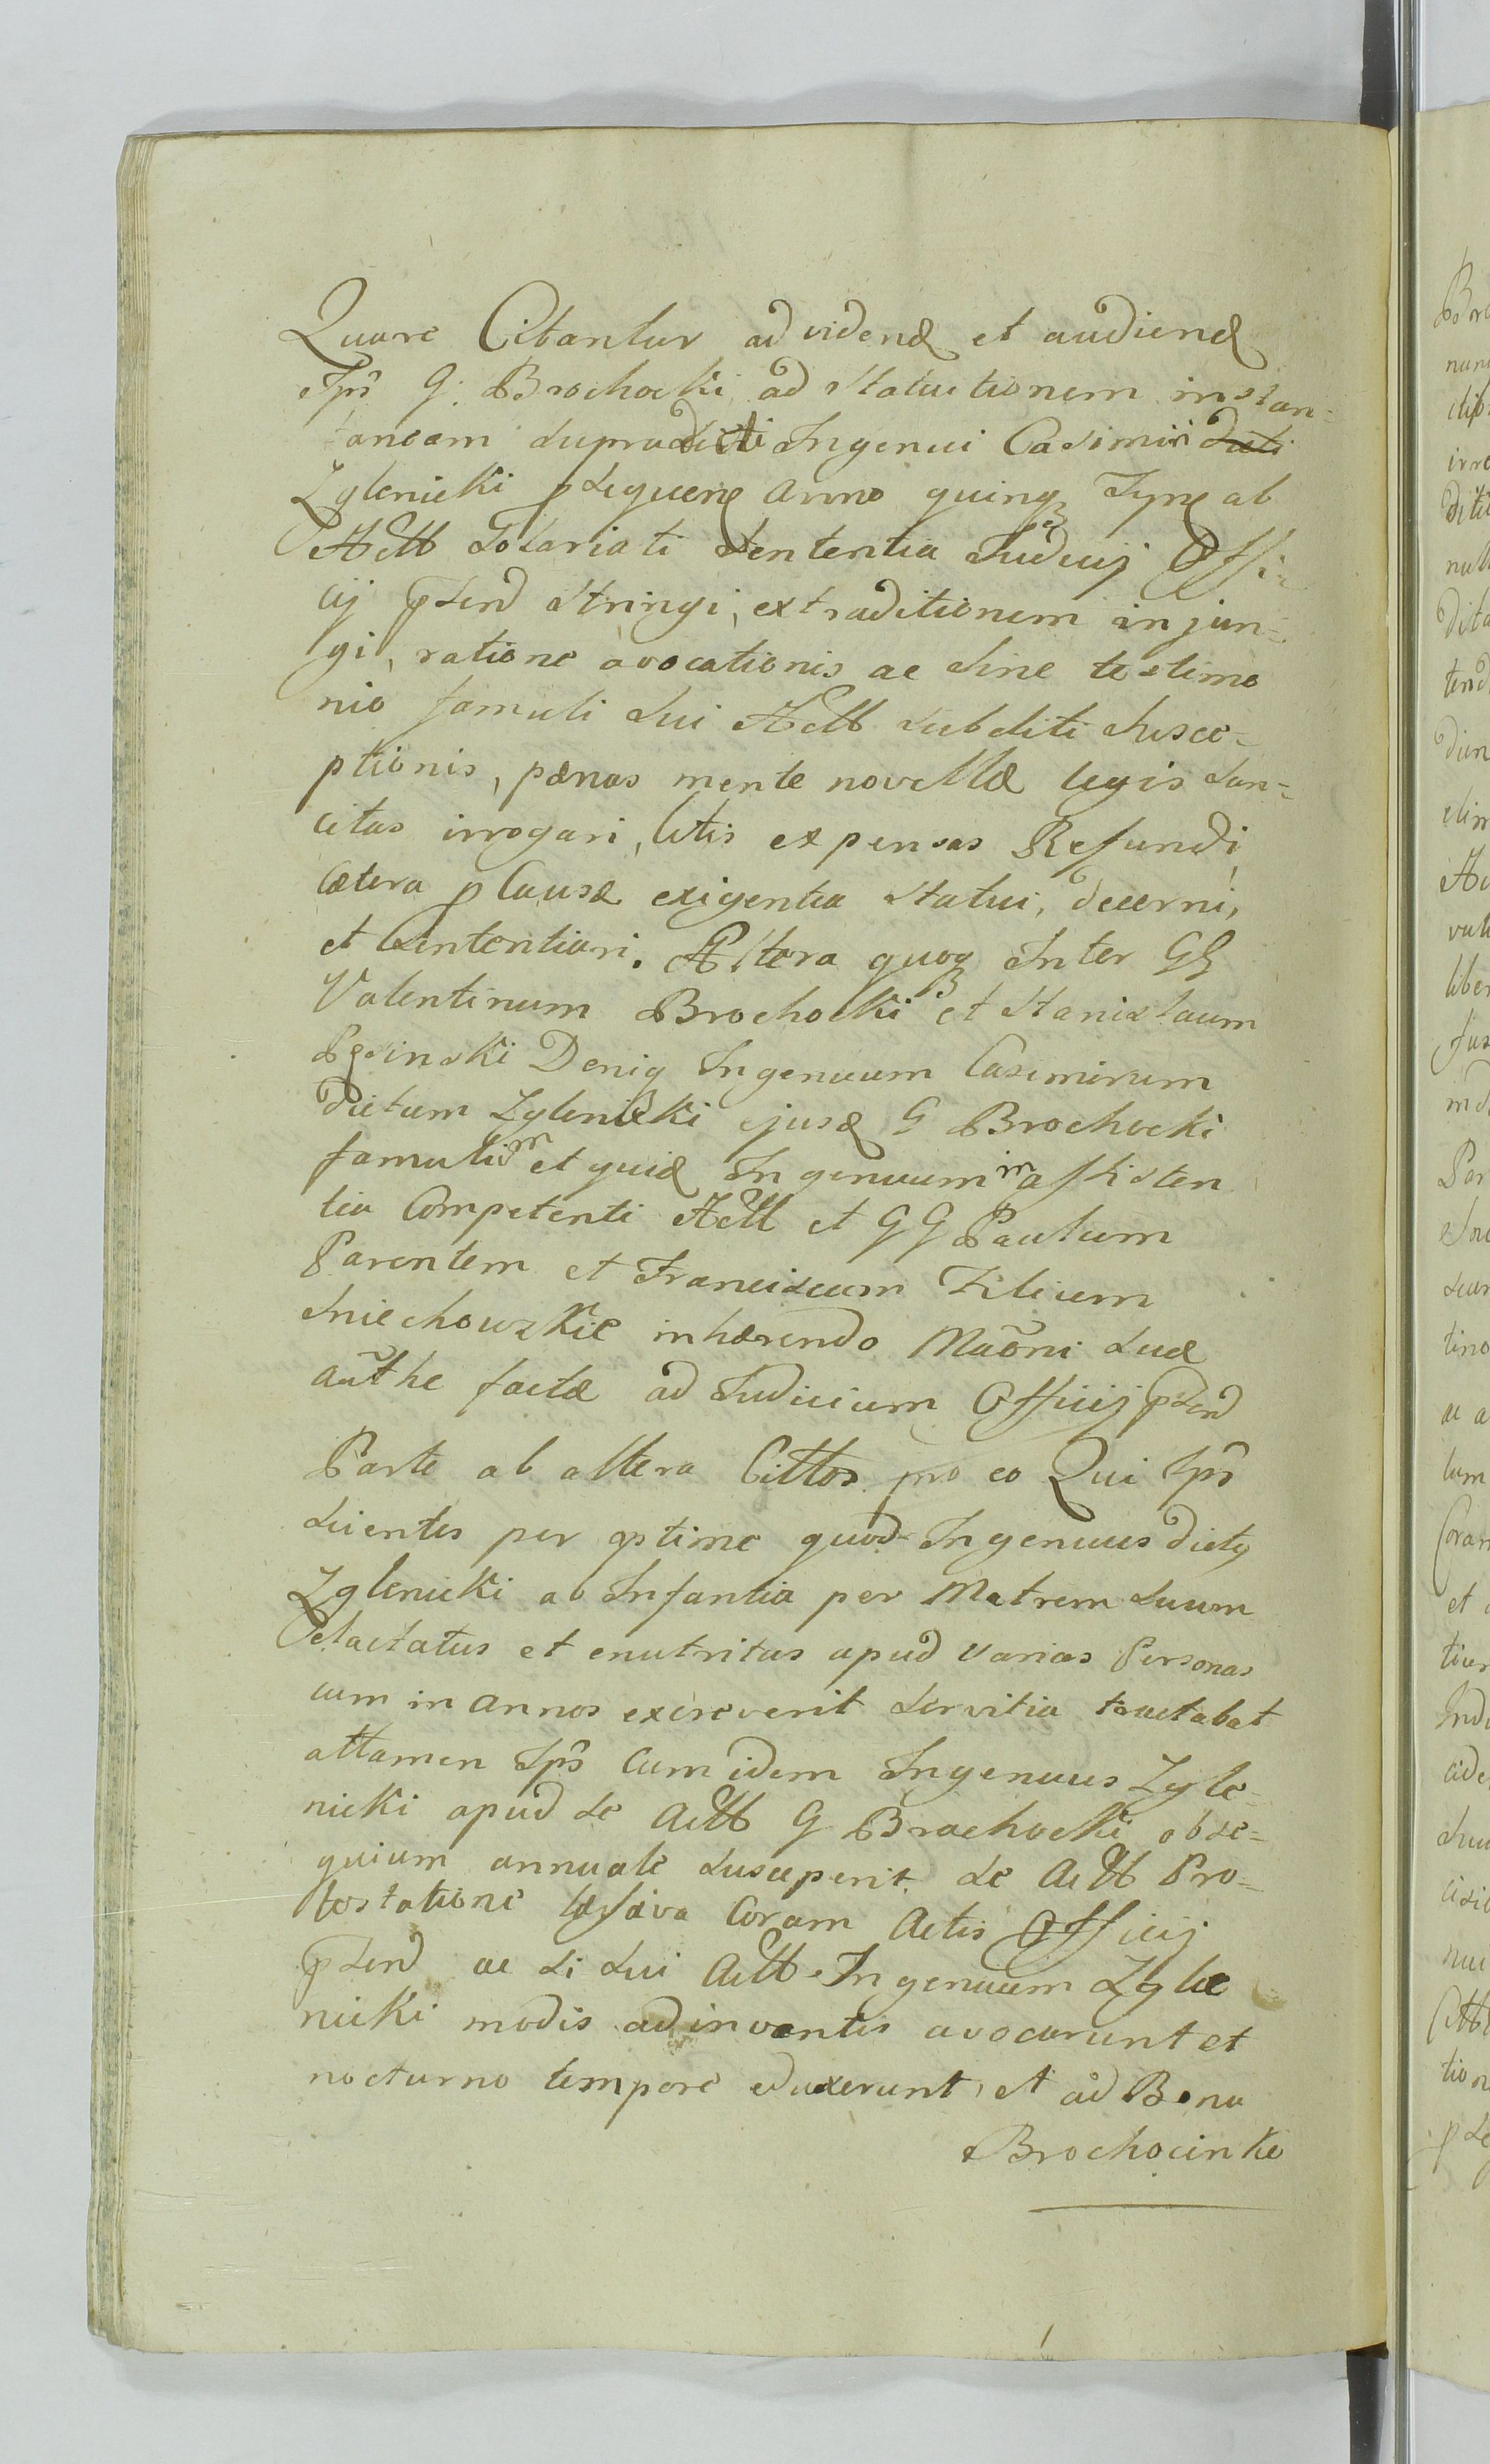 Quare Citantur ad videnđ et audienđ
Ips G. Brochocki ad Statuitionem instan=
taneam supradicti Ingenui Casimiri dicti
Zglenicki pseqven anno quinqȝ Fyne ab
Actt Solariati Sententia Judicij Offi=
cij psend stringi, extraditionem injun=
gi, ratione avocationis ac sine testimo
nio famuli sui Actt subditi susce=
ptionis, pænas mente novellæ legis san=
citas irrogari, litis expensas Refundi
Cætera p Causæ exigentia statui, decerni,
et sententiari. Altera quoqȝ Inter GG
Valentinum Brochocki et Stanislaum
Denig Ingenuum Casimirum
dictum Zglenicki ejusd G Brochocki
famulum et quid Ingenuum in assisten
tia Competenti Actt et GG Paulum
Parentem et Franciscum Filium
Sniechowskie inhærendo Maõni suæ
authe factæ ad Judicium Officij psend
Parte ab altera Cittos pro eo Qui Ips
scientes per optime quod Ingenuus dictq
Zglenicki ab Infantia per Matrem suam
elactatus et enutritus apud varias Personas
cum in annos excreverit servitia tractabat
attamen Ips Cum idem Ingenuus Zgle=
nicki apud se Actt G Brochocki obse=
quium annuale susceperit se Actt Pro=
testatione læsiva Coram Actis Officij
psend ac si sui Actt Ingenuum Zgle
nicki modis adinventis avocarunt et
nocturno tempore eduxerunt, et ad Bona
Brochocinke